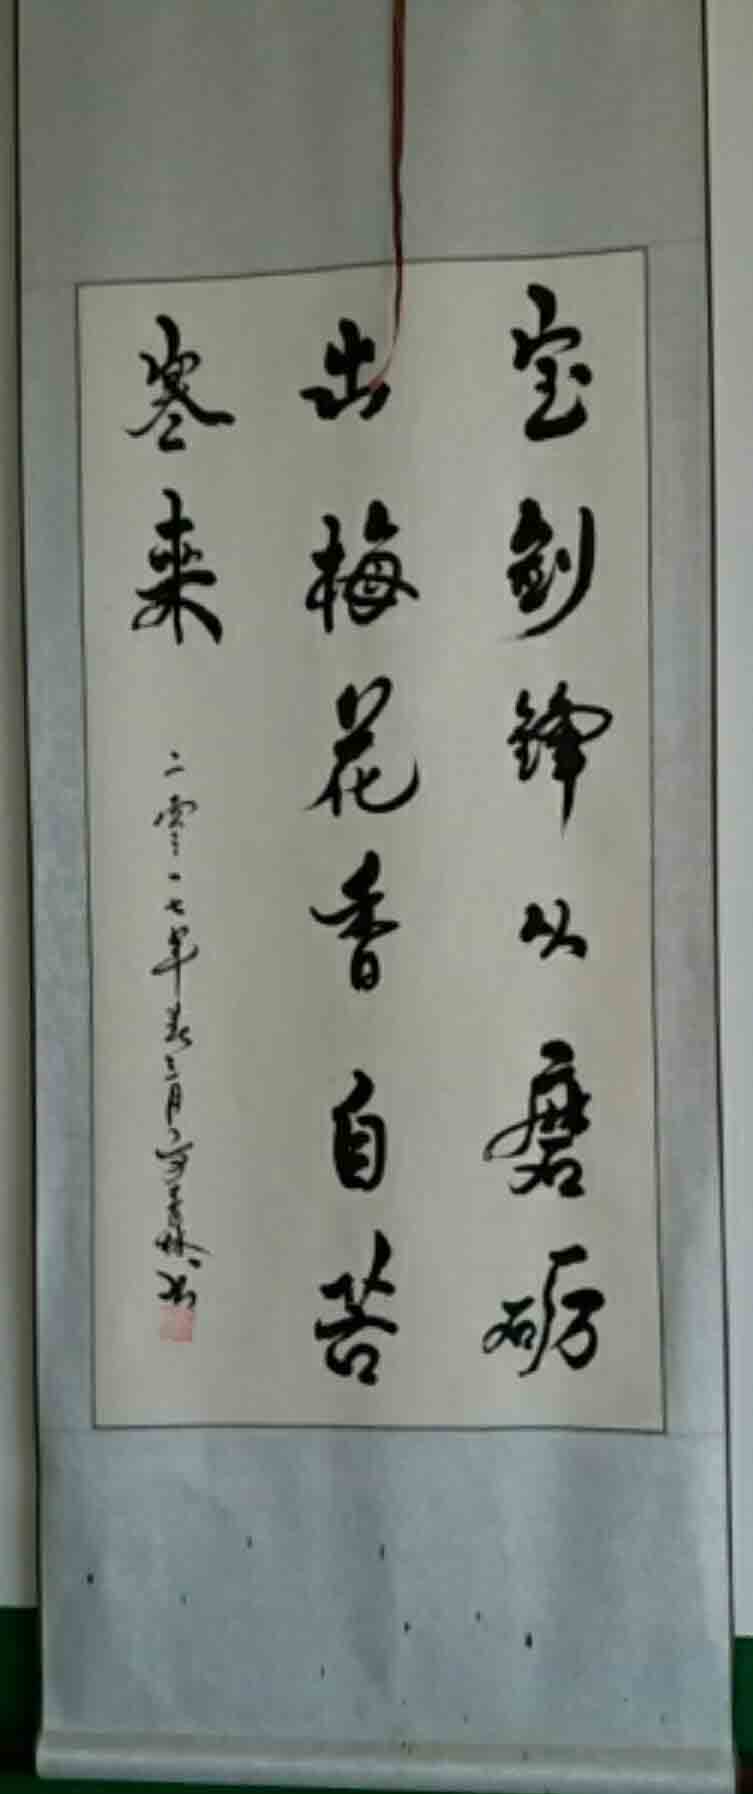 宝剑锋从磨砺
出梅花香自苦
寒来
二零一七年春三月
书